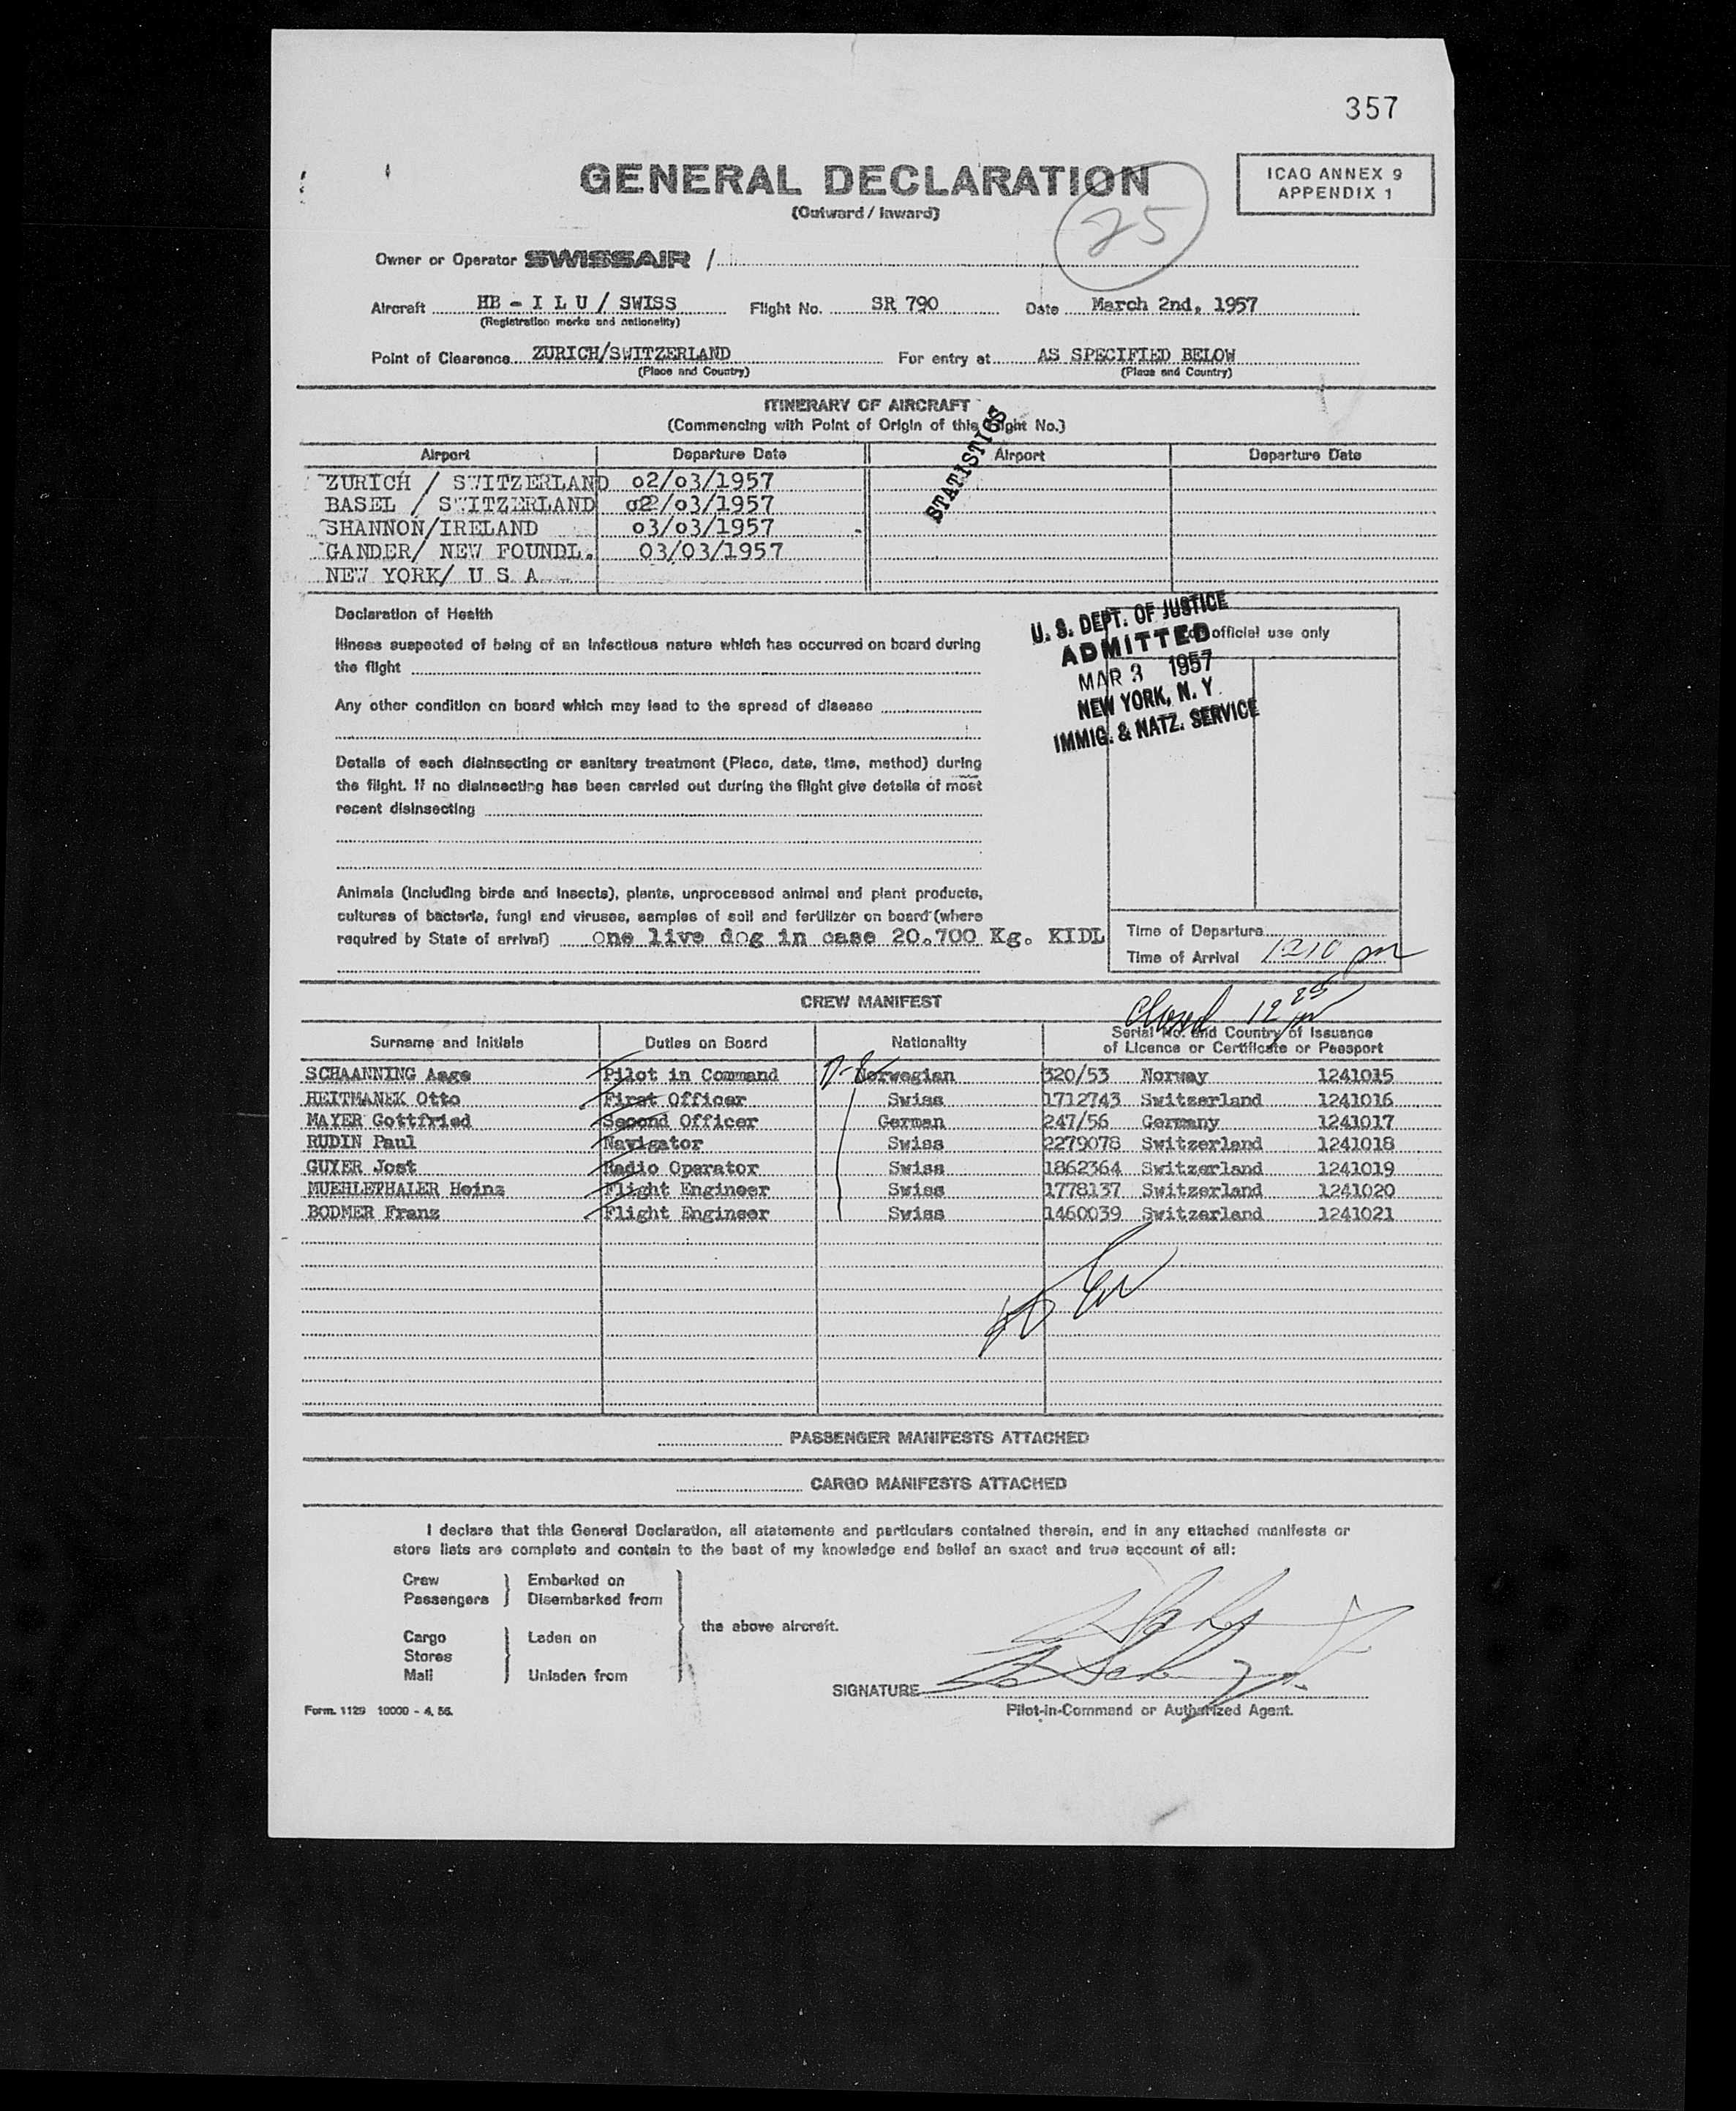 357
GENERAL DECLARATION
(Outward / Inward)
25
ICAO ANNEX 9
APPENDIX 1
Owner or Operator SWISSAIR /
Aircraft HB - I L U / SWISS Flight No. SR 790 Date March 2nd, 1957
(Registration marks and nationality)
Point of Clearance ZURICH/SWITZERLAND For entry at AS SPECIFIED BELOW
(Place and Country) (Place and Country)
ITINERARY OF AIRCRAFT
(Commencing with Point of Origin of this Flight No.)
STATISTICS
Airport Departure Date Airport Departure Date
ZURICH / SWITZERLAND 02/03/1957
BASEL / SWITZERLAND 02/03/1957
SHANNON/IRELAND 03/03/1957
GANDER/ NEW FOUNDL. 03/03/1957
NEW YORK/ U S A
Declaration of Health
Illness suspected of being of an infectious nature which has occurred on board during
the flight
Any other condition on board which may lead to the spread of disease
Details of each disinsecting or sanitary treatment (Place, date, time, method) during
the flight. If no disinsecting has been carried out during the flight give details of most
recent disinsecting
Animals (including birds and insects), plants, unprocessed animal and plant products,
cultures of bacteria, fungi and viruses, samples of soil and fertilizer on board (where
required by State of arrival) one live dog in case 20.700 Kg. KIDL
For official use only
U. S. DEPT. OF JUSTICE
ADMITTED
MAR 3 1957
NEW YORK, N. Y.
IMMIG. & NATZ. SERVICE
Time of Departure
Time of Arrival 1210 pm
Closed 12 25 pm
CREW MANIFEST
Surname and Initials Duties on Board Nationality Serial No. and Country of Issuance
of Licence or Certificate or Passport
SCHAANNING Aage Pilot in Command Norwegian 320/53 Norway 1241015
HEITMANEK Otto First Officer Swiss 1712743 Switzerland 1241016
MAYER Gottfried Second Officer German 247/56 Germany 1241017
RUDIN Paul Navigator Swiss 2279078 Switzerland 1241018
GUYER Jost Radio Operator Swiss 1862364 Switzerland 1241019
MUEHLETHALER Heinz Flight Engineer Swiss 1778137 Switzerland 1241020
BODMER Franz Flight Engineer Swiss 1460039 Switzerland 1241021
PASSENGER MANIFESTS ATTACHED
CARGO MANIFESTS ATTACHED
I declare that this General Declaration, all statements and particulars contained therein, and in any attached manifests or
store lists are complete and contain to the best of my knowledge and belief an exact and true account of all:
Crew Embarked on
Passengers Disembarked from
the above aircraft.
Cargo Laden on
Stores
Mail Unladen from
SIGNATURE
Pilot-in-Command or Authorized Agent.
Form. 1129 10000 - 4. 56.